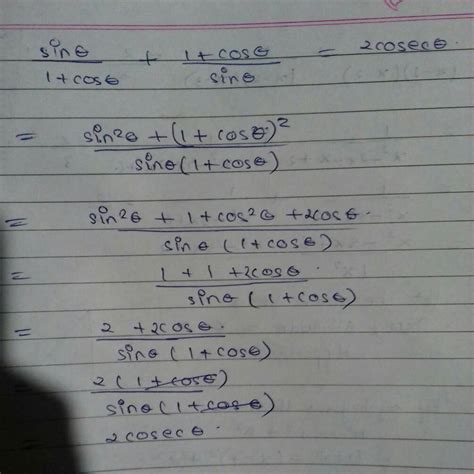 sinθ/1+cosθ + 1+cosθ/sinθ = 2cosecθ.
= sin²θ+(1+cosθ)²/sinθ(1+cosθ)
= sin²θ + 1+cos²θ +2cosθ./sinθ (1+cosθ)
= 1+1+2cosθ/sinθ (1+cosθ)
= 2 +2cosθ./sinθ (1+cosθ)
2(1+cosθ)/sinθ(1+cosθ)
2cosecθ.